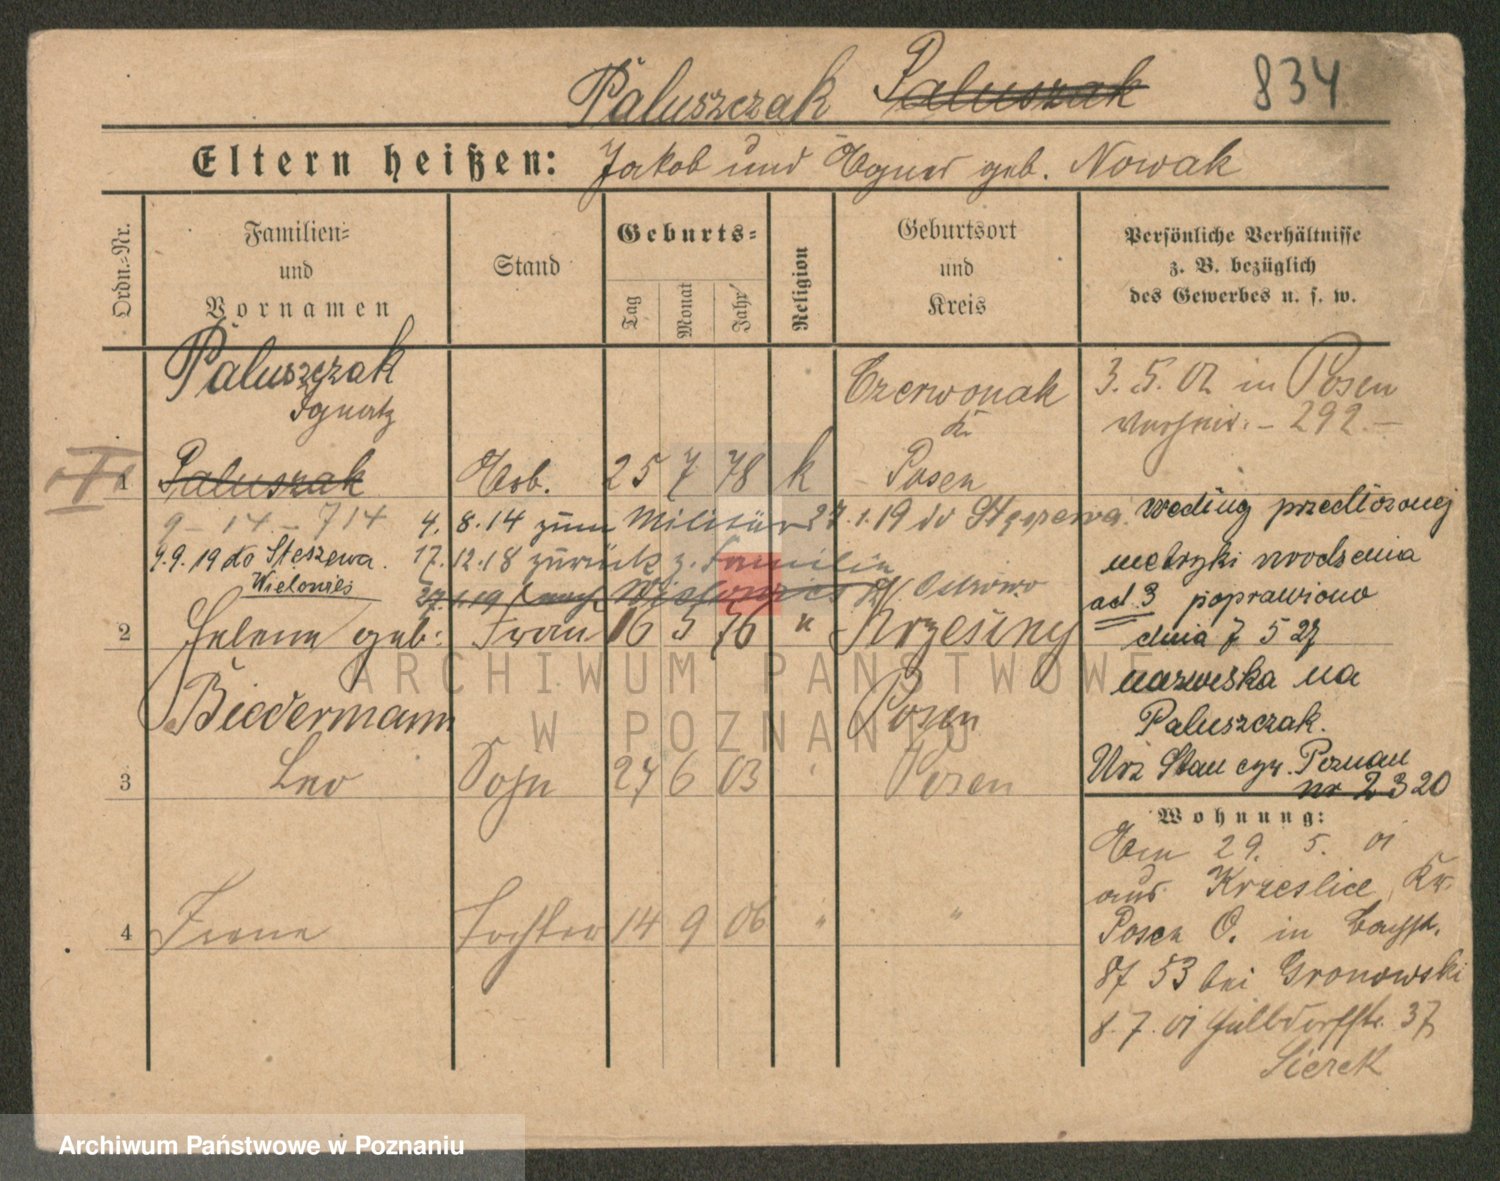 Paluszczak Paluszak 834
Eltern heißen: Jakob und Agnes geb. Nowak
Ordn.-Nr.
Familien-
und
Vornamen
Stand
Geburts-
Tag
Monat
Jahr
Religion
Geburtsort
und
Kreis
Persönliche Verhältnisse
z. B. bezüglich
des Gewerbes u. s. w.
Paluszczak
Ignatz
1 Paluszak Arb. 25 7 78 k
Czerwonak
Kr.
Posen
3.5.02 in Posen
292.
9-14-714
4. 8.14 zum Militär 27.1.19 do Stęszewa
9.9.19 do Steszewa. 17.12.18 zurück z. Familie
Wielowieś
2 Helene geb: Frau 16 5 76 " Krzesiny
Biedermann Posen
3 Leo Sohn 27 6 03 " Posen
4 Irene Tochter 14 9 06 " "
według przedłożonej
metryki urodzenia
ad 3 poprawiono
dnia 7 5 27
nazwiska na
Paluszczak.
Urz Stan cyw. Poznań
nr 2320
Wohnung:
Am 29. 5. 01
aus Krzeslice, Kr.
Posen O. in
53 bei Gronowski
8.7.01 Halbdorfstr. 37
Sierek
ARCHIWUM PAŃSTWOWE
W POZNANIU
Archiwum Państwowe w Poznaniu